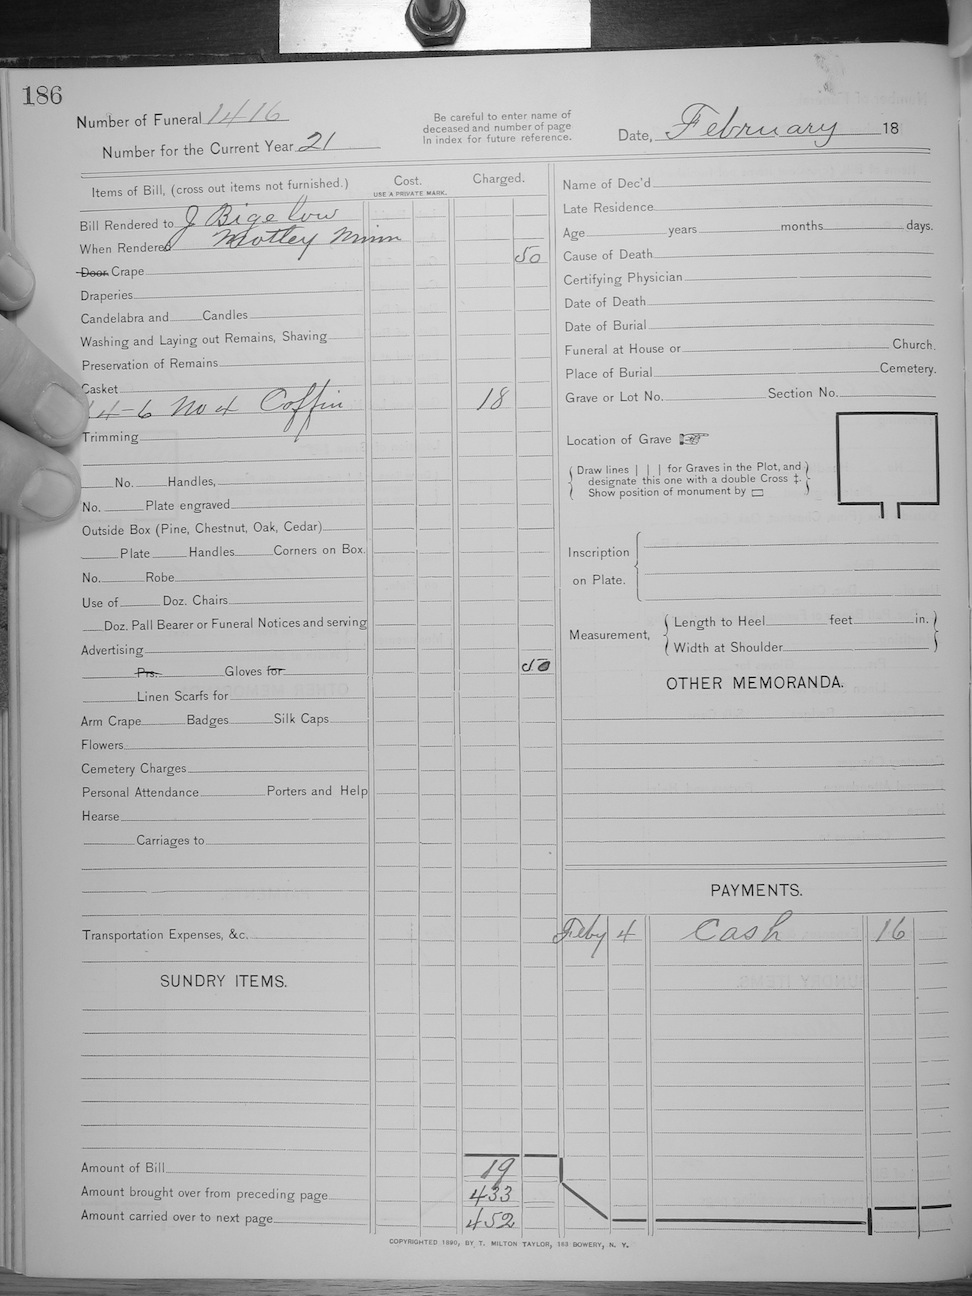 186
Number of Funeral 1416
Be careful to enter name of
deceased and number of page
In index for future reference.
Date, February 18
Number for the Current Year 21
Items of Bill, (cross out items not furnished.)
Cost.
USE A PRIVATE MARK.
Charged.
Bill Rendered to J Bigelow
When Rendered Motley Minn
Door Crape 50
Draperies
Candelabra and Candles
Washing and Laying out Remains, Shaving
Preservation of Remains
Casket
4-6 No 4 Coffin 18
Trimming
No. Handles,
No. Plate engraved
Outside Box (Pine, Chestnut, Oak, Cedar)
Plate Handles Corners on Box.
No. Robe
Use of Doz. Chairs
Doz. Pall Bearer or Funeral Notices and serving
Advertising
Prs. Gloves for 50
Linen Scarfs for
Arm Crape Badges Silk Caps
Flowers
Cemetery Charges
Personal Attendance Porters and Help
Hearse
Carriages to
Transportation Expenses, &c.
SUNDRY ITEMS.
Amount of Bill 19
Amount brought over from preceding page 433
Amount carried over to next page 452
Name of Dec'd
Late Residence
Age years months days.
Cause of Death
Certifying Physician
Date of Death
Date of Burial
Funeral at House or Church.
Place of Burial Cemetery.
Grave or Lot No. Section No.
Location of Grave
Draw lines | | | for Graves in the Plot, and
designate this one with a double Cross ‡.
Show position of monument by ▭
Inscription
on Plate.
Measurement,
Length to Heel feet in.
Width at Shoulder
OTHER MEMORANDA.
PAYMENTS.
Feby 4 Cash 16
COPYRIGHTED 1890, BY T. MILTON TAYLOR, 183 BOWERY, N. Y.